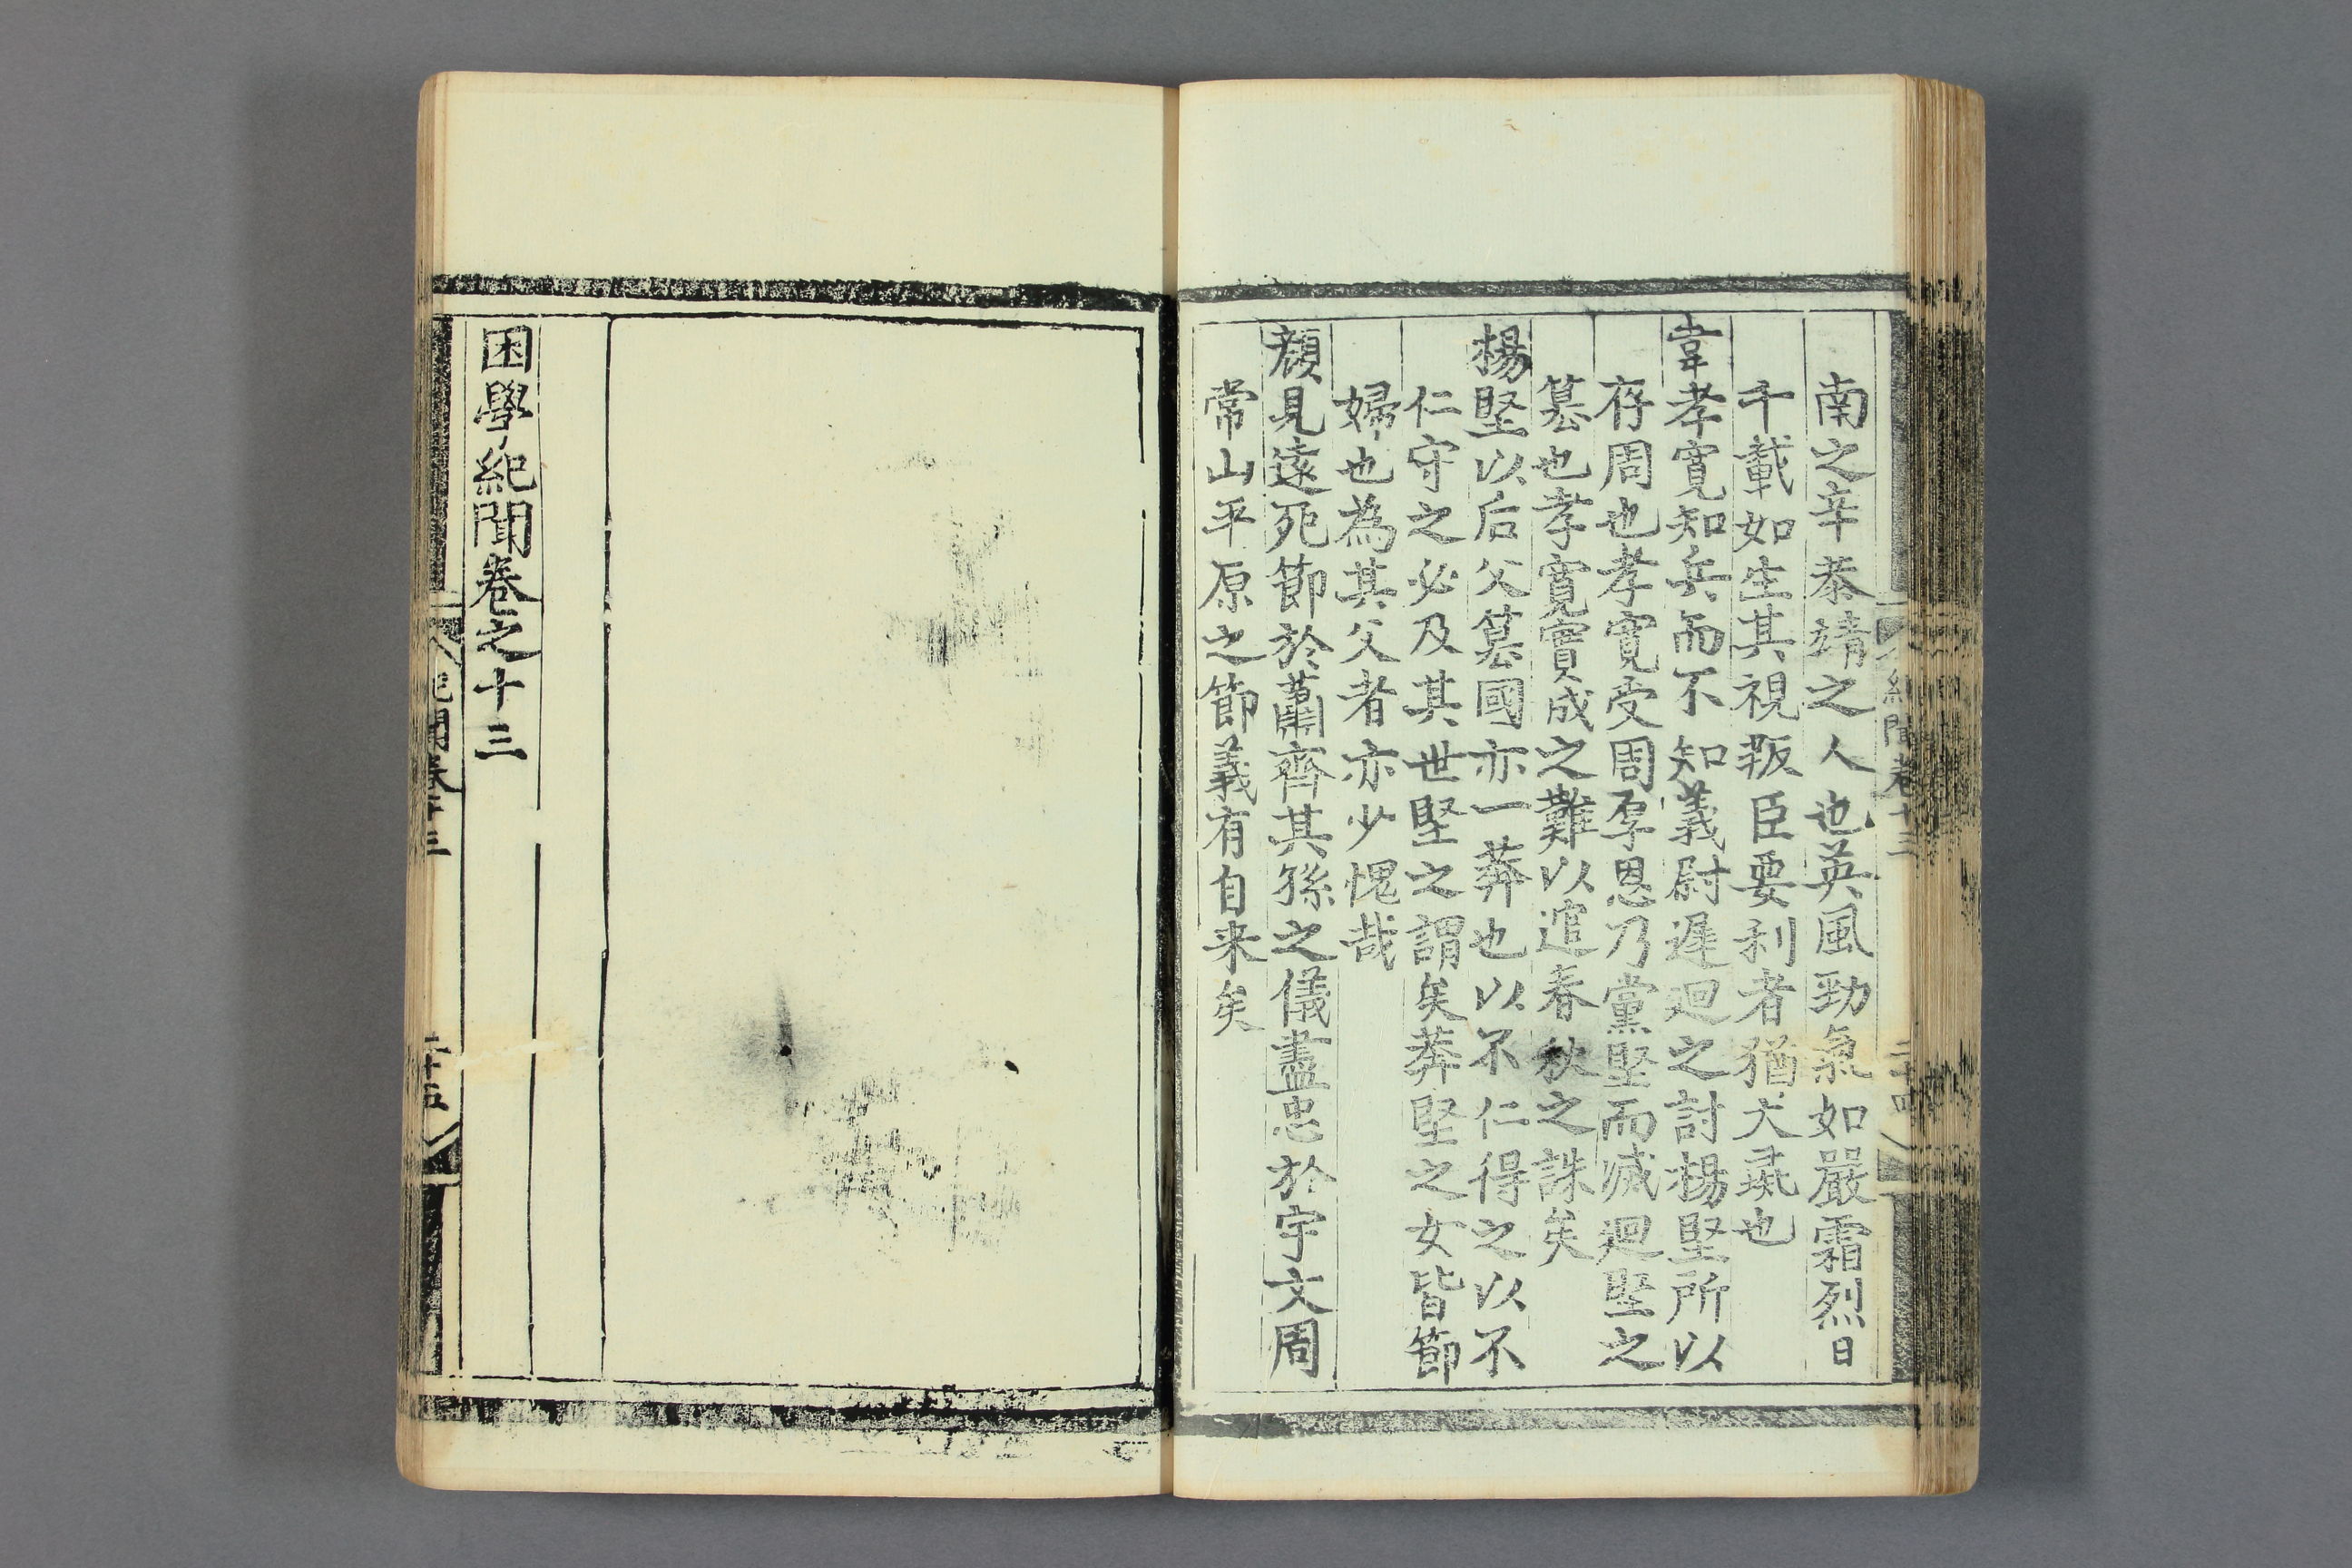 紀聞卷十三
二十四
南之辛恭靖之人也英風勁氣如嚴霜烈日
千載如生其視叛臣要利者猶犬彘也
韋孝寬知兵而不知義尉遲迴之討楊堅所以
存周也孝寬受周厚恩乃黨堅而滅迴堅之
篡也孝寬實成之難以逭春秋之誅矣
楊堅以后父篡國亦一莽也以不仁得之以不
仁守之必及其世堅之謂矣莽堅之女皆節
婦也為其父者亦少愧哉
顏見遠死節於蕭齊其孫之儀盡忠於宇文周
常山平原之節義有自来矣
困學紀聞卷之十三
紀聞卷十三